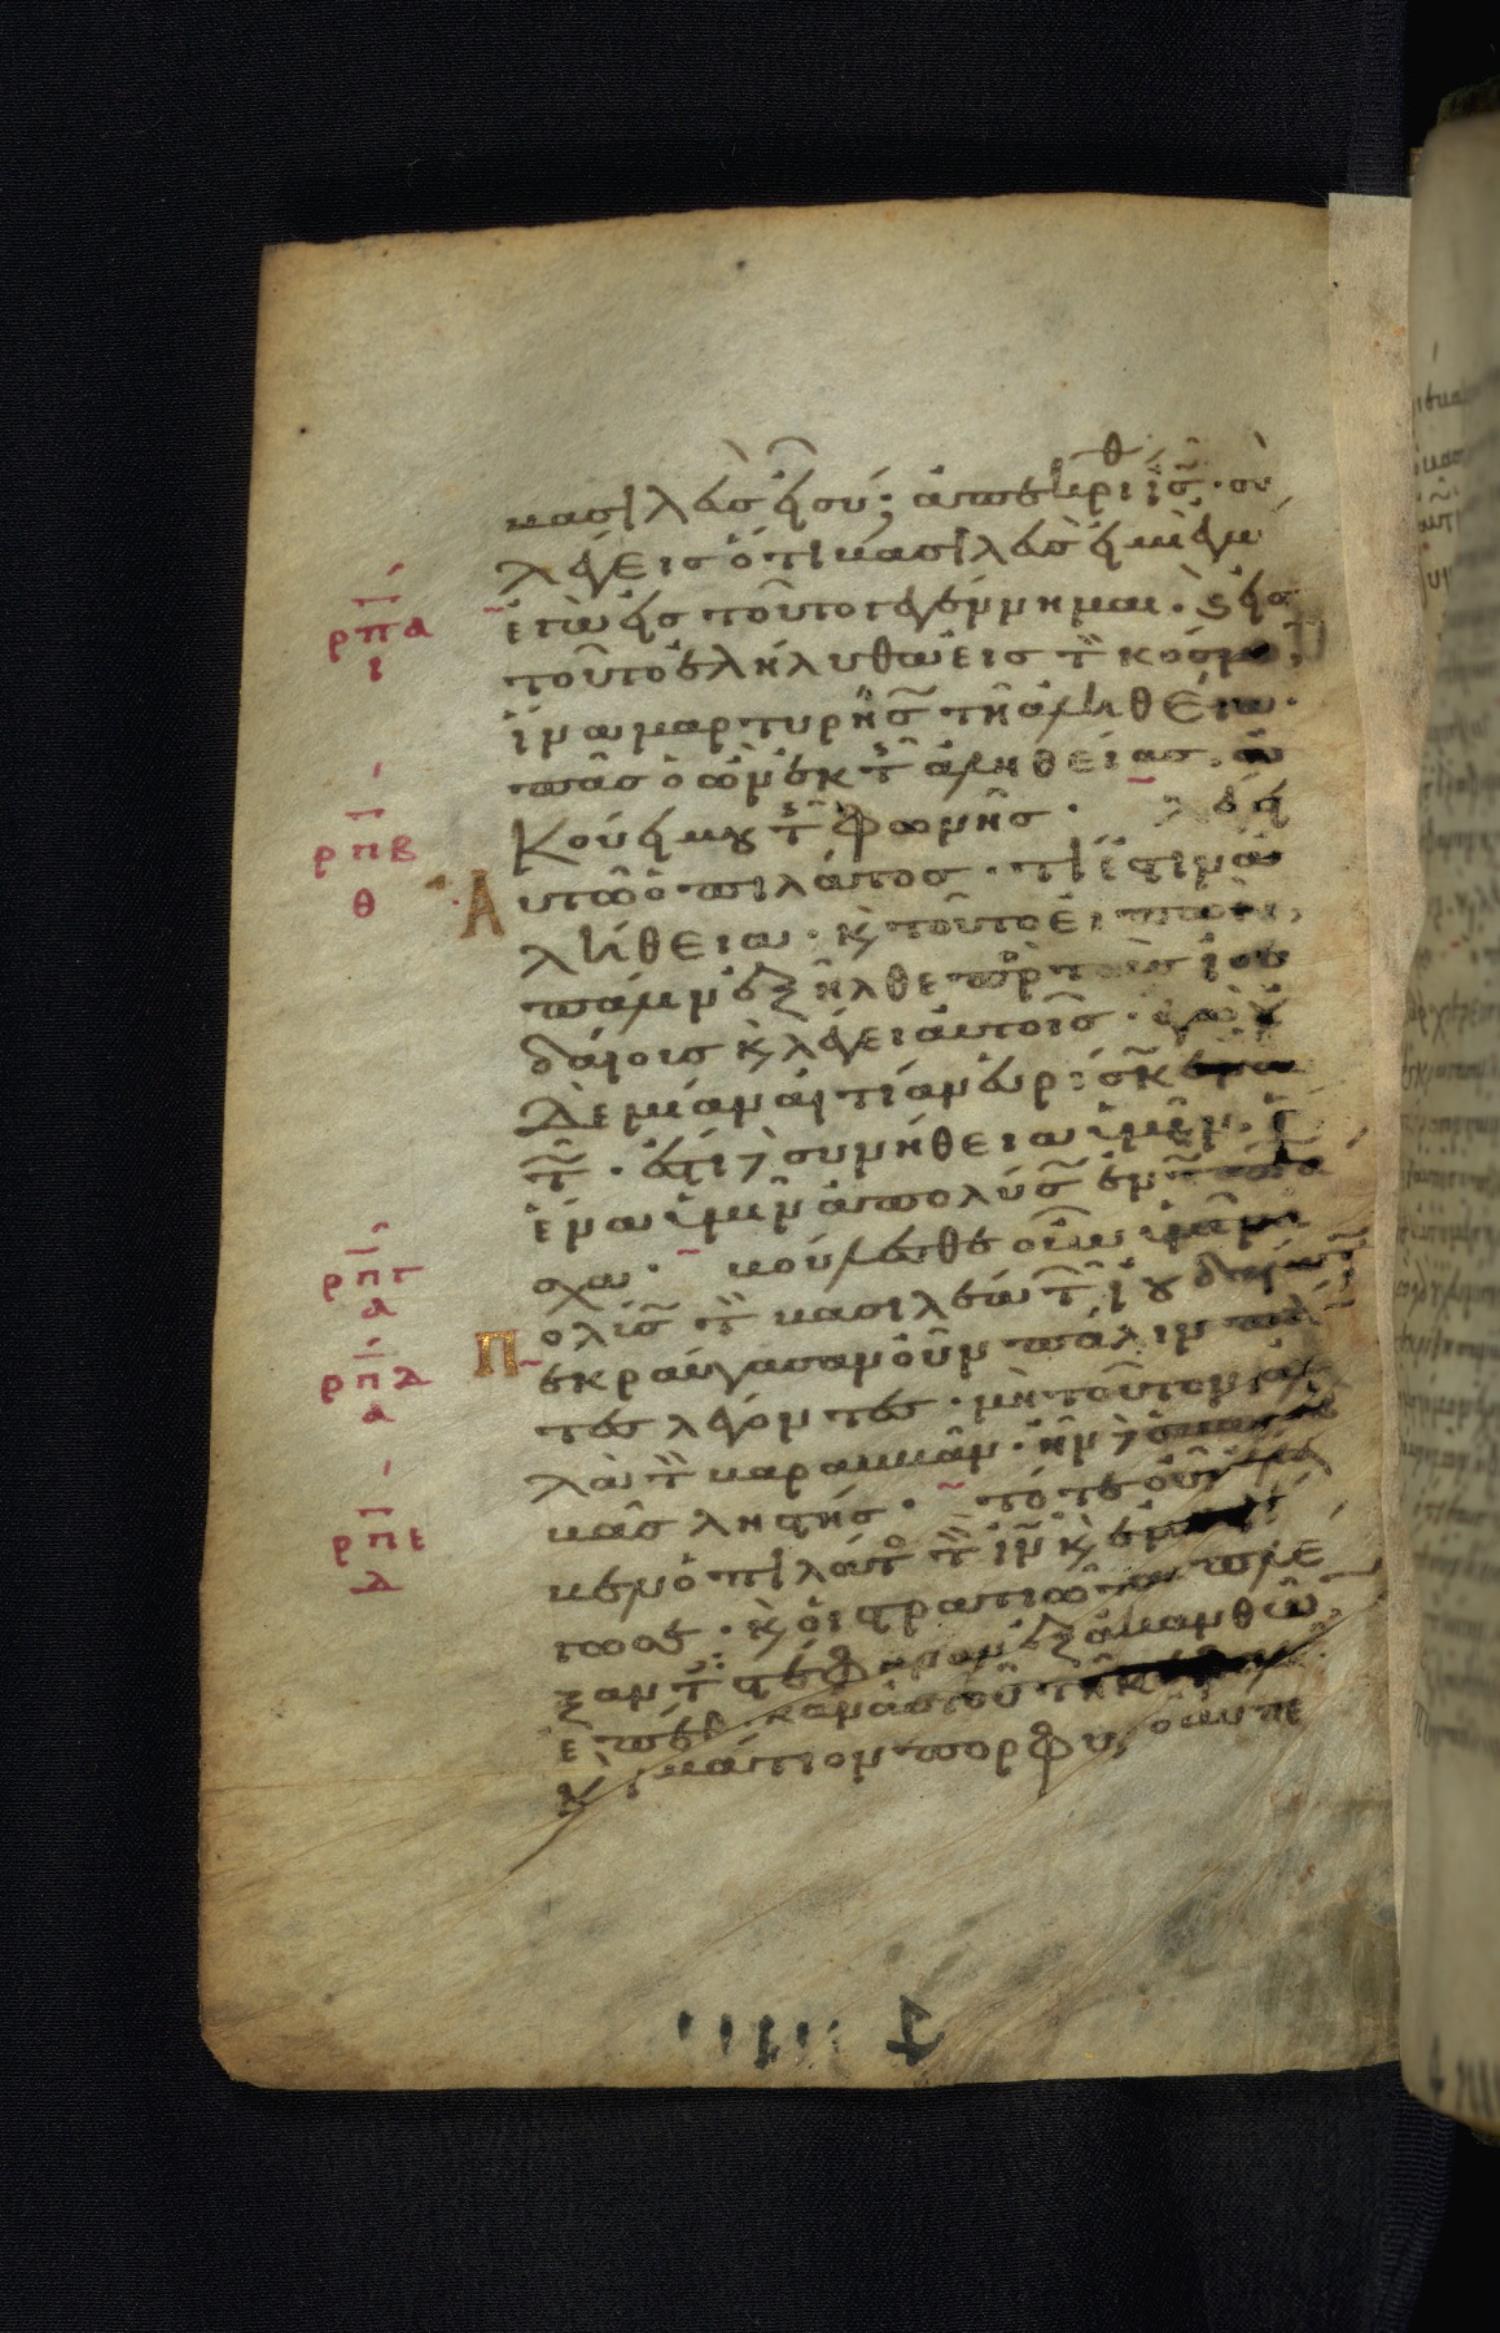 βασιλεὺς εἶ σύ; ἀπεκρίθη ἰς̃ · σὺ
λέγεις ὅτι βασιλεὺς εἰμὶ ἐγώ
ρπα ἐγὼ εἰς τοῦτο γεγέννημαι · ϗ εἰς
ι τοῦτο ἐλήλυθα εἰς τ̀ κόσμον,
ἵνα μαρτυρήσω τῆ ἀληθεία ·
πᾶς ὁ ὢν ἐκ τ̂ ἀληθείας, ἀ
ρπβ κούει μου τ̂ φωνῆς · λέγει
θ Αυτῶ ὁ πιλάτος · τί ἐστιν ἀ
λήθεια · ϗ τοῦτο εἰπὼν
πάλιν ἐξῆλθε πρ τοὺς ἰου
δαίους ϗ λέγει αὐτοῖς · ἐγὼ οὐ
δεμίαν αἰτίαν εὑρίσκω ἐν αὐ
τ̃ · ἔστι δὲ συνήθεια ὑμῖν · ἵ
ἕνα ὑμῖν ἀπολύσω ἐν τῶ πά
ρπγ σχα · βούλεσθε οὖν ὑμῖν
α ολύσω τ̀ βασιλέα τ̂ ἰουδαίων
ρπδ Πεκραύγασαν οὖν πάλιν
α τες λέγοντες · μὴ τοῦτον ἀλ
λὰ τ̀ βαραββᾶν · ἦν δὲ ὁ βαραβ
ρπε βᾶς ληστής · τότε οὖν
δ βεν ὁ πιλάτος τ̀ ἰν̃ ϗ ἐμαστί
γωσε · ϗ οἱ στρατιῶται πλέ
ξαντες στέφανον ἐξ ἀκανθῶν
ἐπέθηκαν αὐτοῦ τῆ κεφαλῆ
ϗ ἱμάτιον πορφυροῦν πε